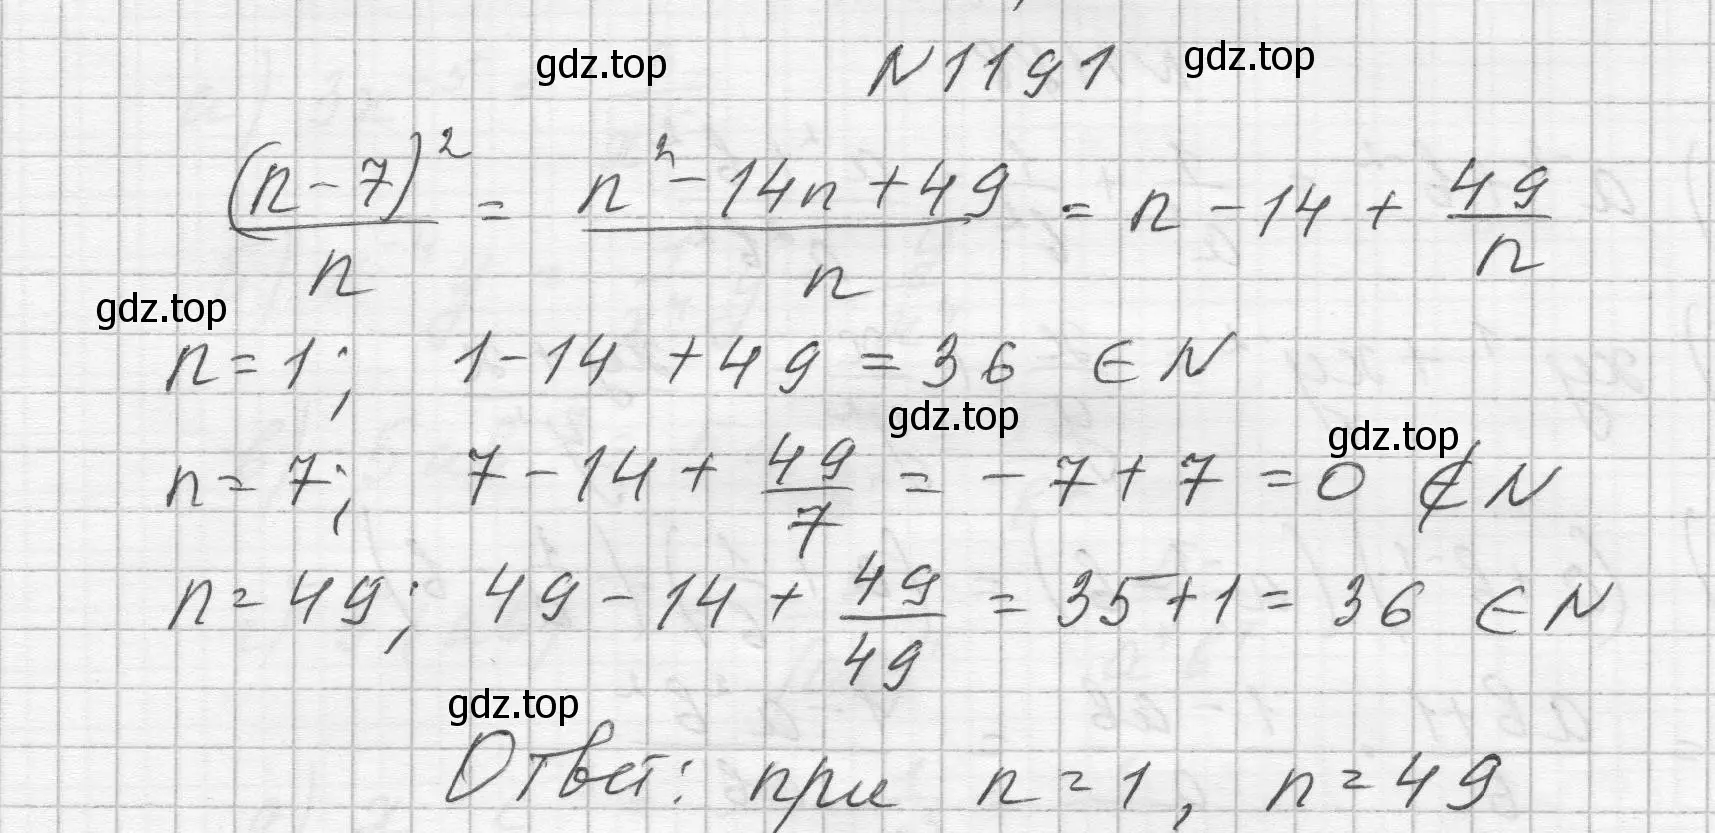 gdz.top N1191 gdz.top
(n-7)²/n = n²-14n+49/n = n-14+49/n
gdz.top
n=1; 1-14+49=36 ∈ N
gdz.top gdz.top
n=7; 7-14+49/7 = -7+7=0 ∉ N
n=49; 49-14+49/49 = 35+1=36 ∈ N
gdz.top
Ответ: при n=1, n=49